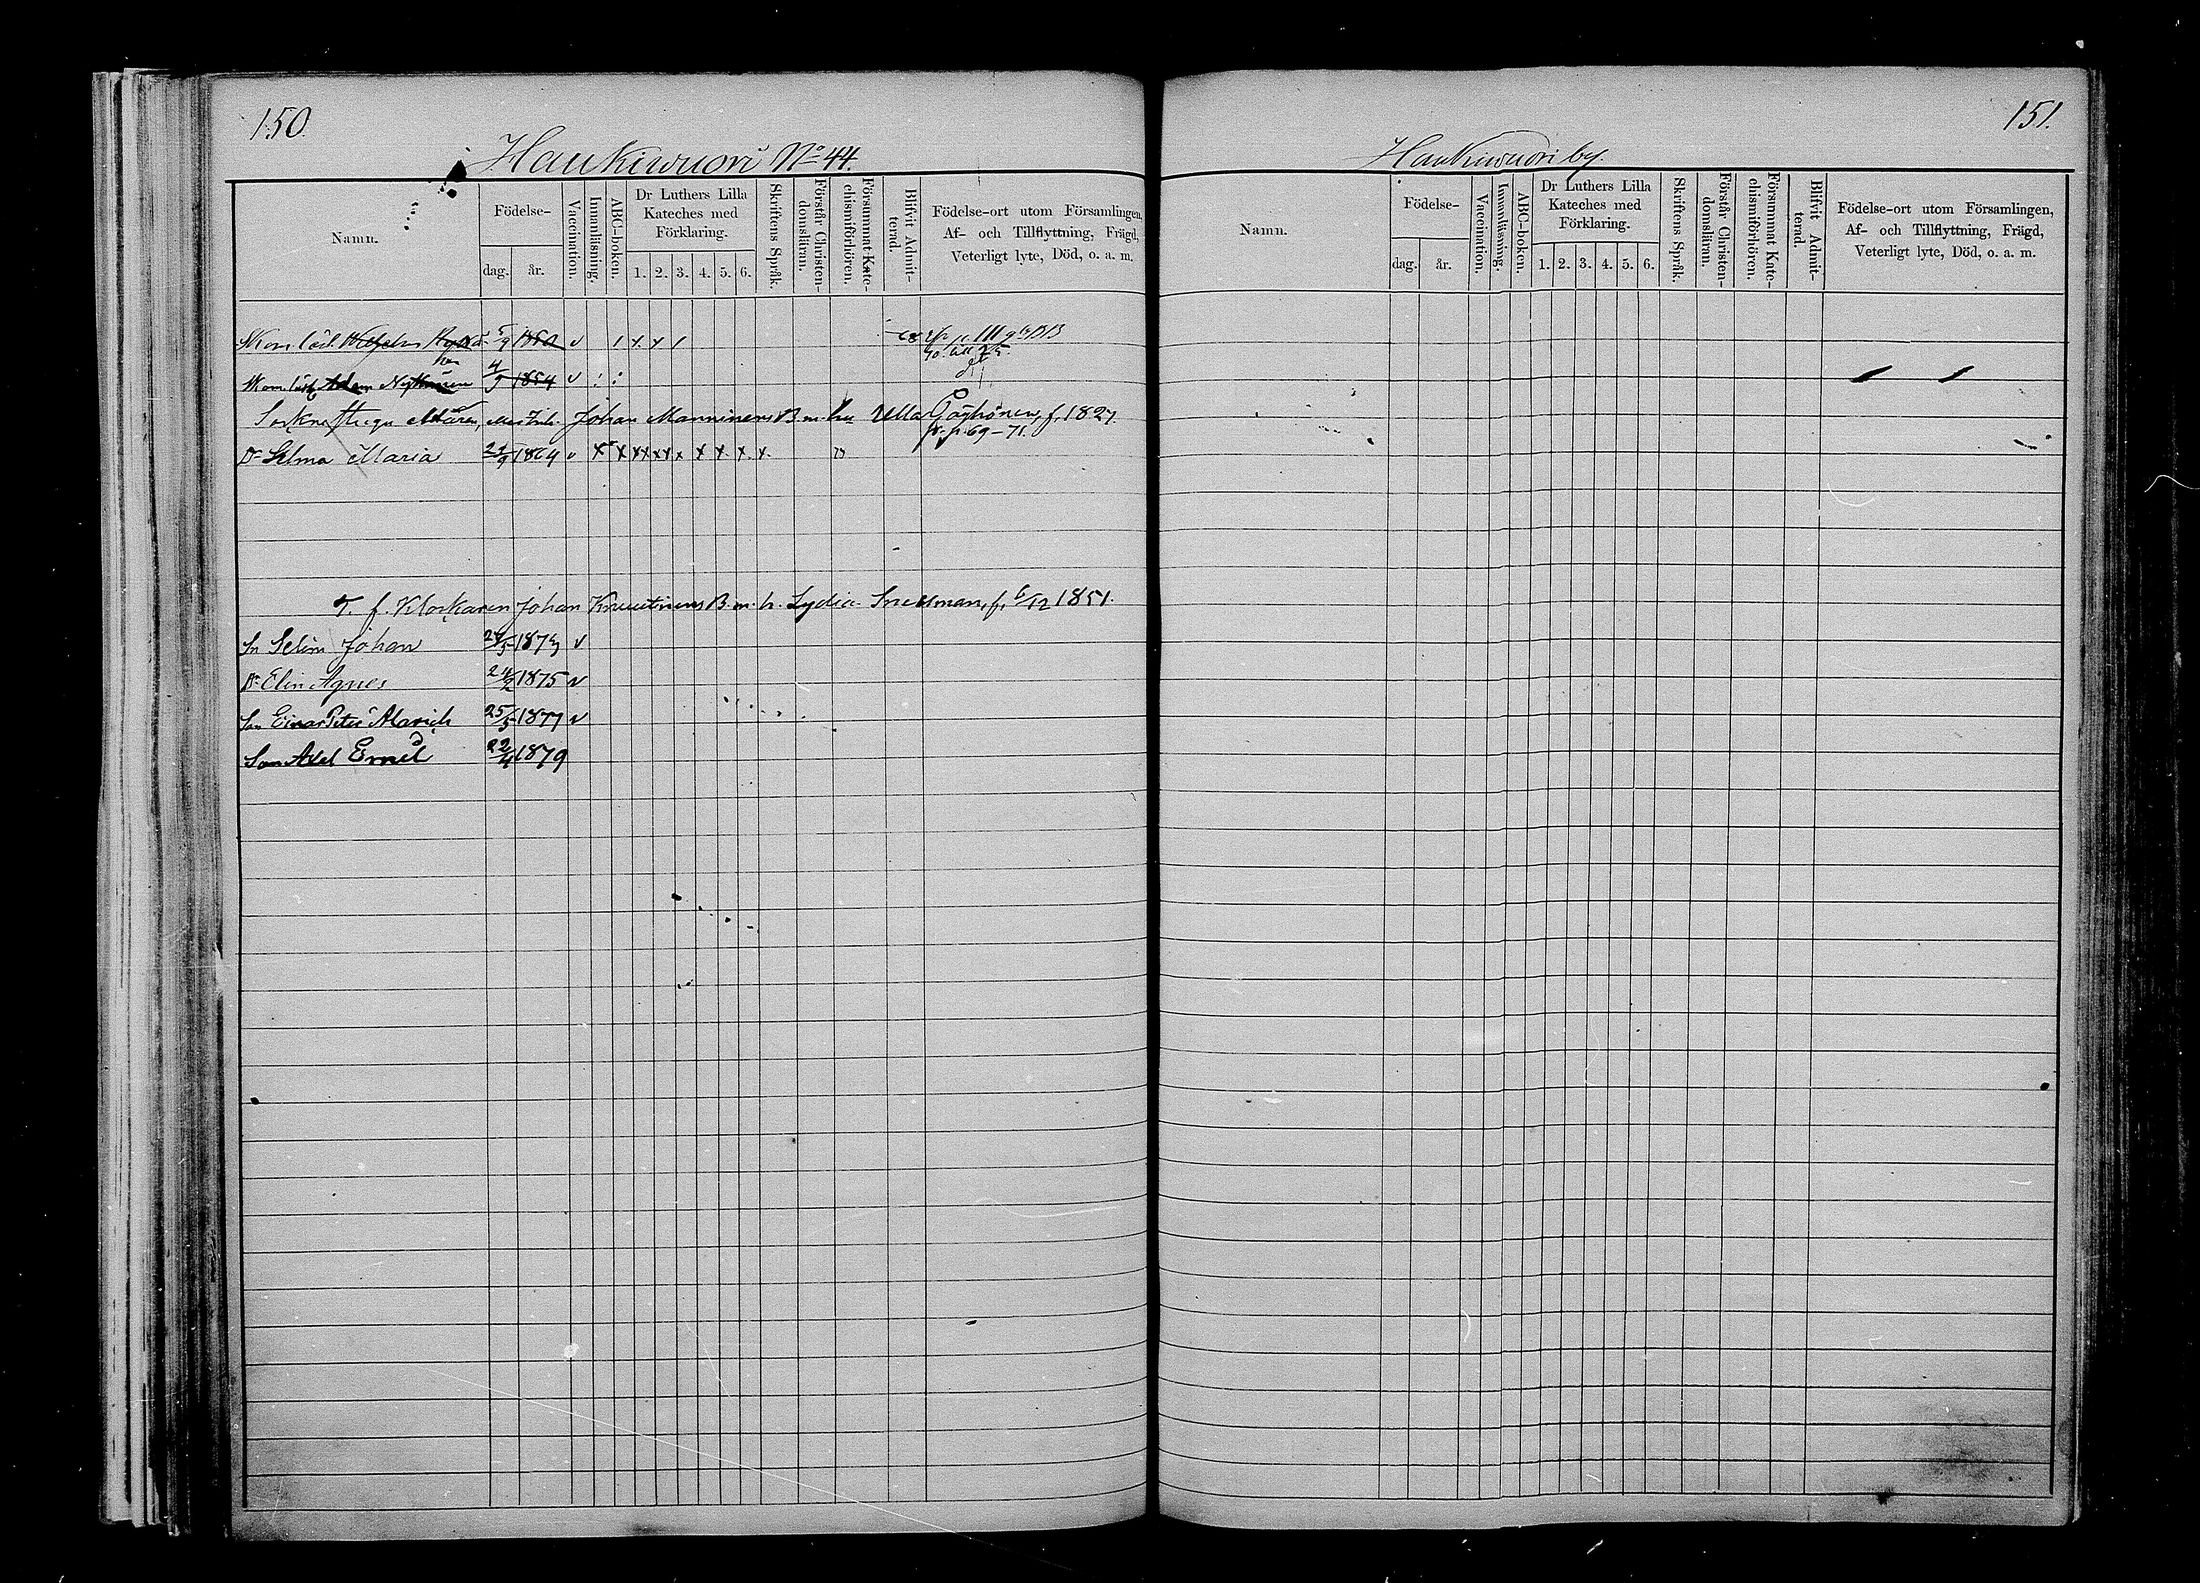 150.
Haukiwuori No 44.
Namn.
Födelse-
dag.
år.
Vaccination.
Innanläsning.
ABC-boken.
Dr Luthers Lilla
Kateches med
Förklaring.
1. 2. 3. 4. 5. 6.
Skriftens Språk.
Förstår Christen-
domsläran.
Försummat Kate-
chismiförhören.
Blifvit Admit-
terad.
Födelse-ort utom Församlingen,
Af- och Tillflyttning, Frägd,
Veterligt lyte, Död, o. a. m.
Wilhelm 5/9 1850 v
Adam Nykänen 4/9 1854 v
Johan Manninens B. m. hu Ulla f. 1827.
fr. p. 69-71.
Dr Selma Maria 21/9 1864 v x x x x x x x x x x
T. f. Klockaren Johan Knuutinens B. m. h. Lydia Snellman, f. 6/12 1851.
Sn Selim Johan 24/5 1873 v
Dr Elin Agnes 24/2 1875 v
Son Einar Peter Alarich 25/5 1877 v
Son Axel Emil 22/4 1879
151.
Haukiwuori by.
Namn.
Födelse-
dag.
år.
Vaccination.
Innanläsning.
ABC-boken.
Dr Luthers Lilla
Kateches med
Förklaring.
1. 2. 3. 4. 5. 6.
Skriftens Språk.
Förstår Christen-
domsläran.
Försummat Kate-
chismiförhören.
Blifvit Admit-
terad.
Födelse-ort utom Församlingen,
Af- och Tillflyttning, Frägd,
Veterligt lyte, Död, o. a. m.